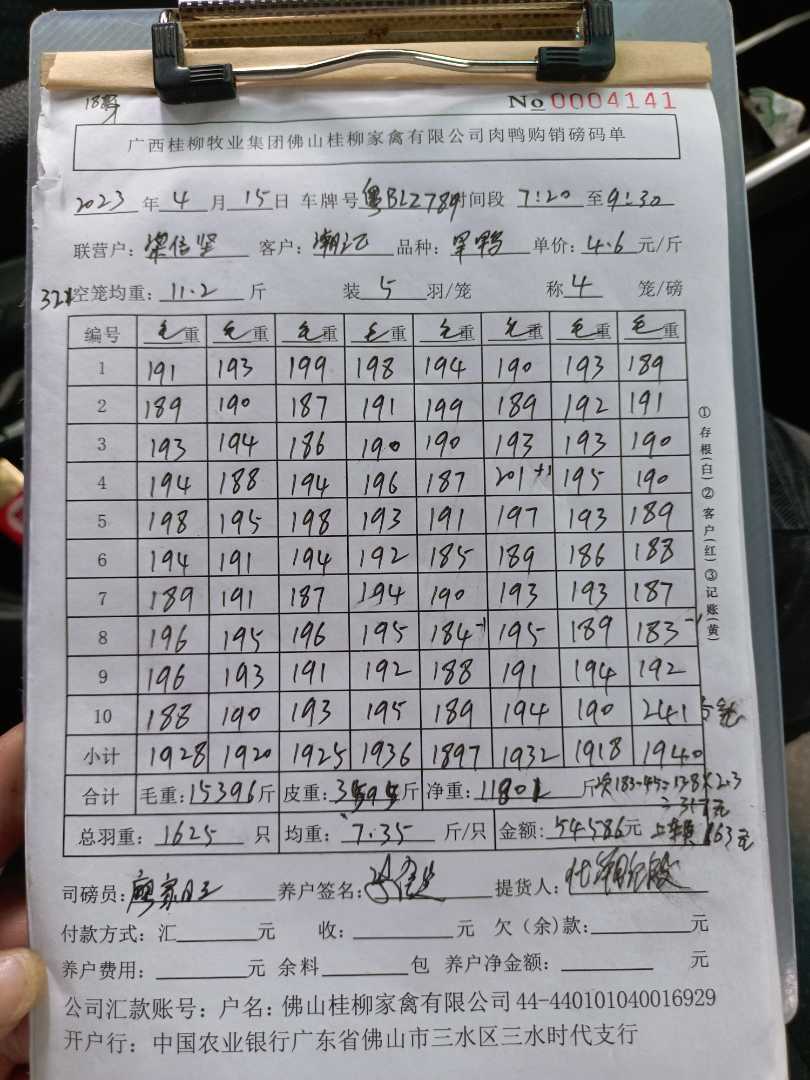 No 0004141
广西桂柳牧业集团佛山桂柳家禽有限公司肉鸭购销磅码单
2023 年 4 月 15 日 车牌号 粤BLZ789 时间段 7:20 至 9:30
联营户: 梁信坚 客户: 潮江 品种: 单价: 4.6 元/斤
空笼均重: 11.2 斤 装 5 羽/笼 称 4 笼/磅
编号 毛重 毛重 毛重 毛重 毛重 毛重 毛重 毛重
1 191 193 199 198 194 190 193 189
2 189 190 187 191 199 189 192 191
3 193 194 186 190 190 193 193 190
4 194 188 194 196 187 201+1 195 190
5 198 195 198 193 191 197 193 189
6 194 191 194 192 185 189 186 188
7 189 191 187 194 190 193 193 187
8 196 195 196 195 184-1 195 189 183-1
9 196 193 191 192 188 191 194 192
10 188 190 193 195 189 194 190 241
小计 1928 1920 1925 1936 1897 1932 1918 1940
合计 毛重: 15396 斤 皮重: 斤 净重: 11801 斤 次183-45=138×2.3
=317元
总羽重: 1625 只 均重: 7.35 斤/只 金额: 54586 元 163元
司磅员: 养户签名: 提货人:
付款方式: 汇 元 收: 元 欠(余)款: 元
养户费用: 元 余料 包 养户净金额: 元
公司汇款账号: 户名: 佛山桂柳家禽有限公司 44-440101040016929
开户行: 中国农业银行广东省佛山市三水区三水时代支行
①存根(白)②客户(红)③记账(黄)